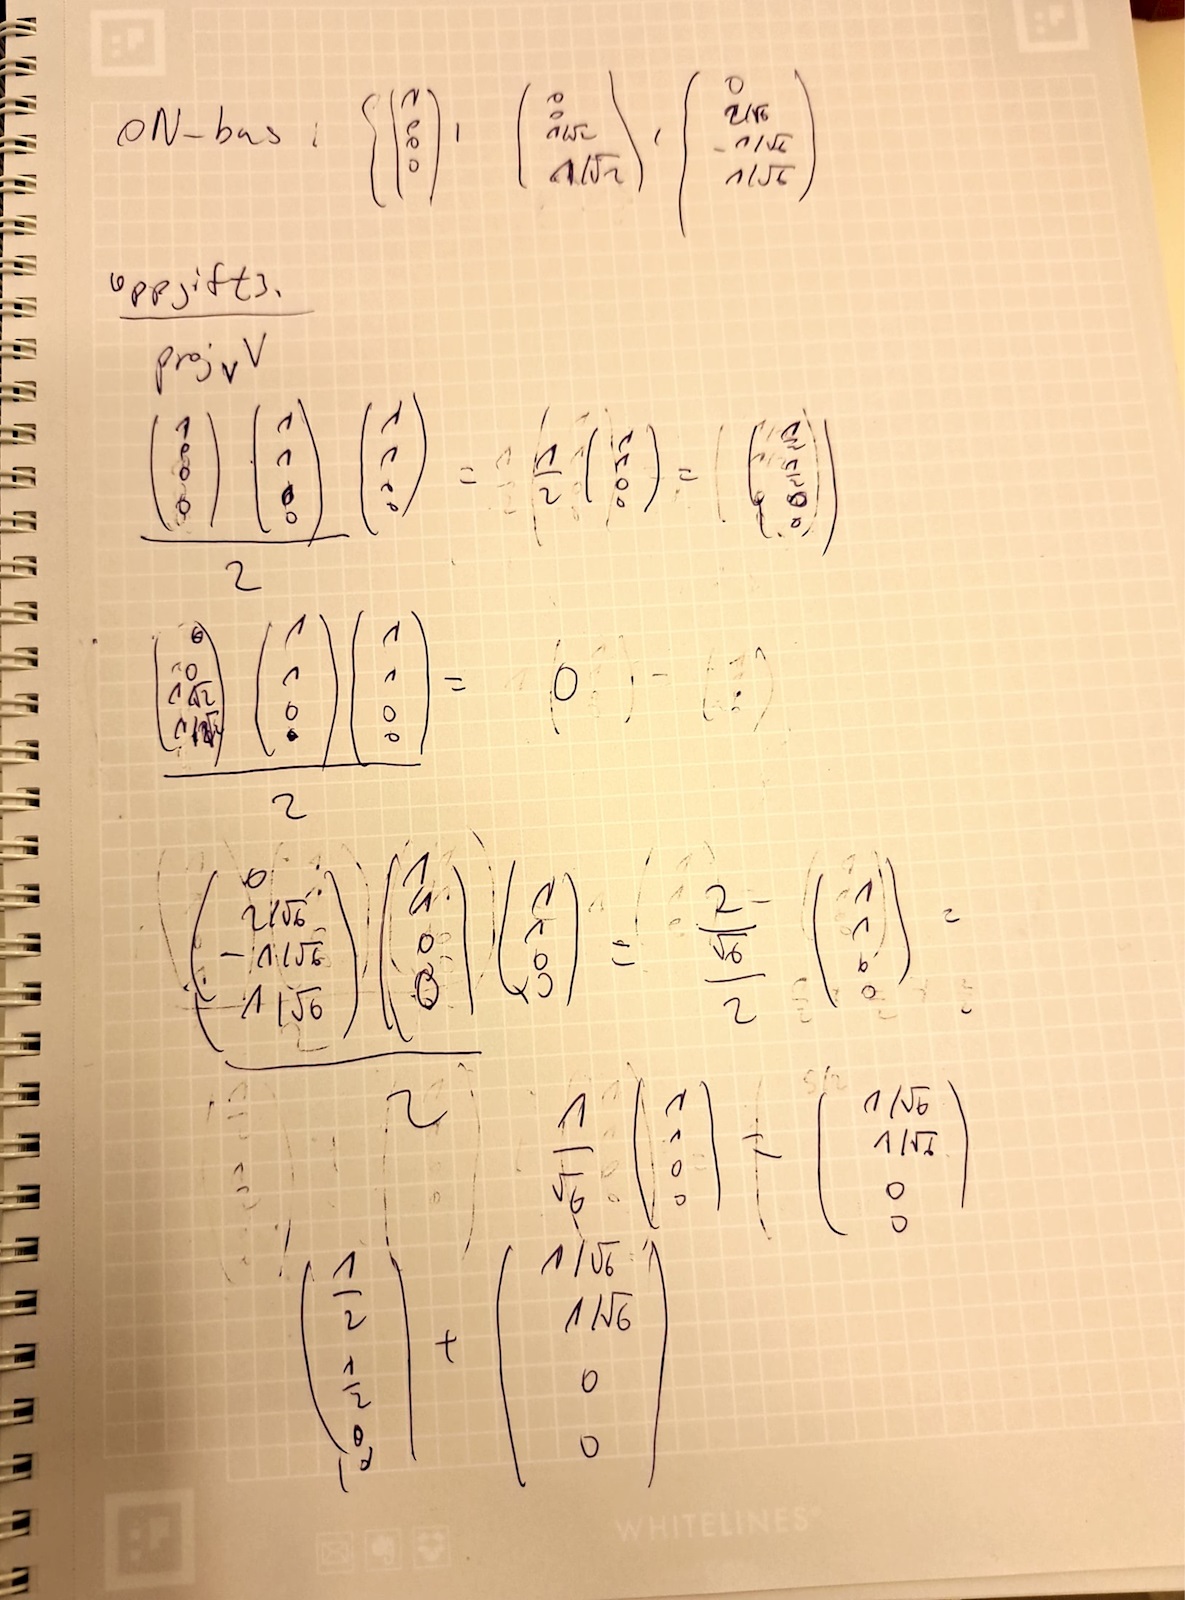 ON-bas: { (1 0 0 0), (0 0 1/√2 1/√2), (0 2/√6 -1/√6 1/√6)
Uppgift 3.
proj_v V
(1 0 0 0) (1 1 0 0) (1 1 0 0) / 2 = 1/2 (1 1 0 0) =
(0 0 1/√2 1/√2) (1 1 0 0) (1 1 0 0) / 2 = 0
(0 2/√6 -1/√6 1/√6) (1 1 0 0) (1 1 0 0) / 2 = 2/√6 / 2 (1 1 0 0) =
1/√6 (1 1 0 0) = (1/√6 1/√6 0 0)
(1/2 1/2 0 0) + (1/√6 1/√6 0 0)
WHITELINES®